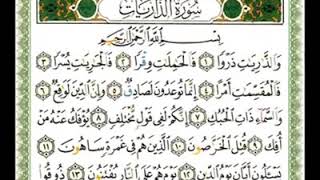 سورة الذاريات
بسم الله الرحمن الرحيم
وَالذَّارِيَاتِ ذَرْوًا ١ فَالْحَامِلَاتِ وِقْرًا ٢ فَالْجَارِيَاتِ يُسْرًا ٣
فَالْمُقَسِّمَاتِ أَمْرًا ٤ إِنَّمَا تُوعَدُونَ لَصَادِقٌ ٥ وَإِنَّ الدِّينَ لَوَاقِعٌ ٦
وَالسَّمَاءِ ذَاتِ الْحُبُكِ ٧ إِنَّكُمْ لَفِي قَوْلٍ مُخْتَلِفٍ ٨ يُؤْفَكُ عَنْهُ مَنْ
أُفِكَ ٩ قُتِلَ الْخَرَّاصُونَ ١٠ الَّذِينَ هُمْ فِي غَمْرَةٍ سَاهُونَ ١١
يَسْأَلُونَ أَيَّانَ يَوْمُ الدِّينِ ١٢ يَوْمَ هُمْ عَلَى النَّارِ يُفْتَنُونَ ١٣ ذُوقُوا